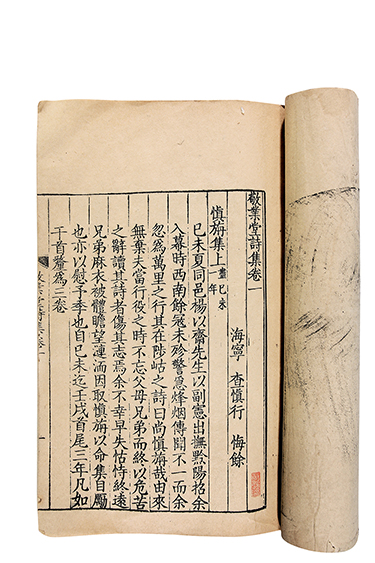 敬業堂詩集卷一
海寧 查慎行 悔餘
慎旃集上
己未夏同邑楊以齋先生以副憲出撫黔陽招余
入幕時西南餘寇未殄警急烽烟傳聞不一而余
忽為萬里之行其在陟岵之詩曰尚慎旃哉由來
無棄夫當行役之時不忘父母兄弟而終以危苦
之辭讀其詩者傷其志焉余不幸早失怙恃終遠
兄弟麻衣被體瞻望漣洏因取慎旃以命集自屬
也亦以慰予季也自己未迄壬戌首尾三年凡如
干首釐為三卷
敬業堂詩集卷一